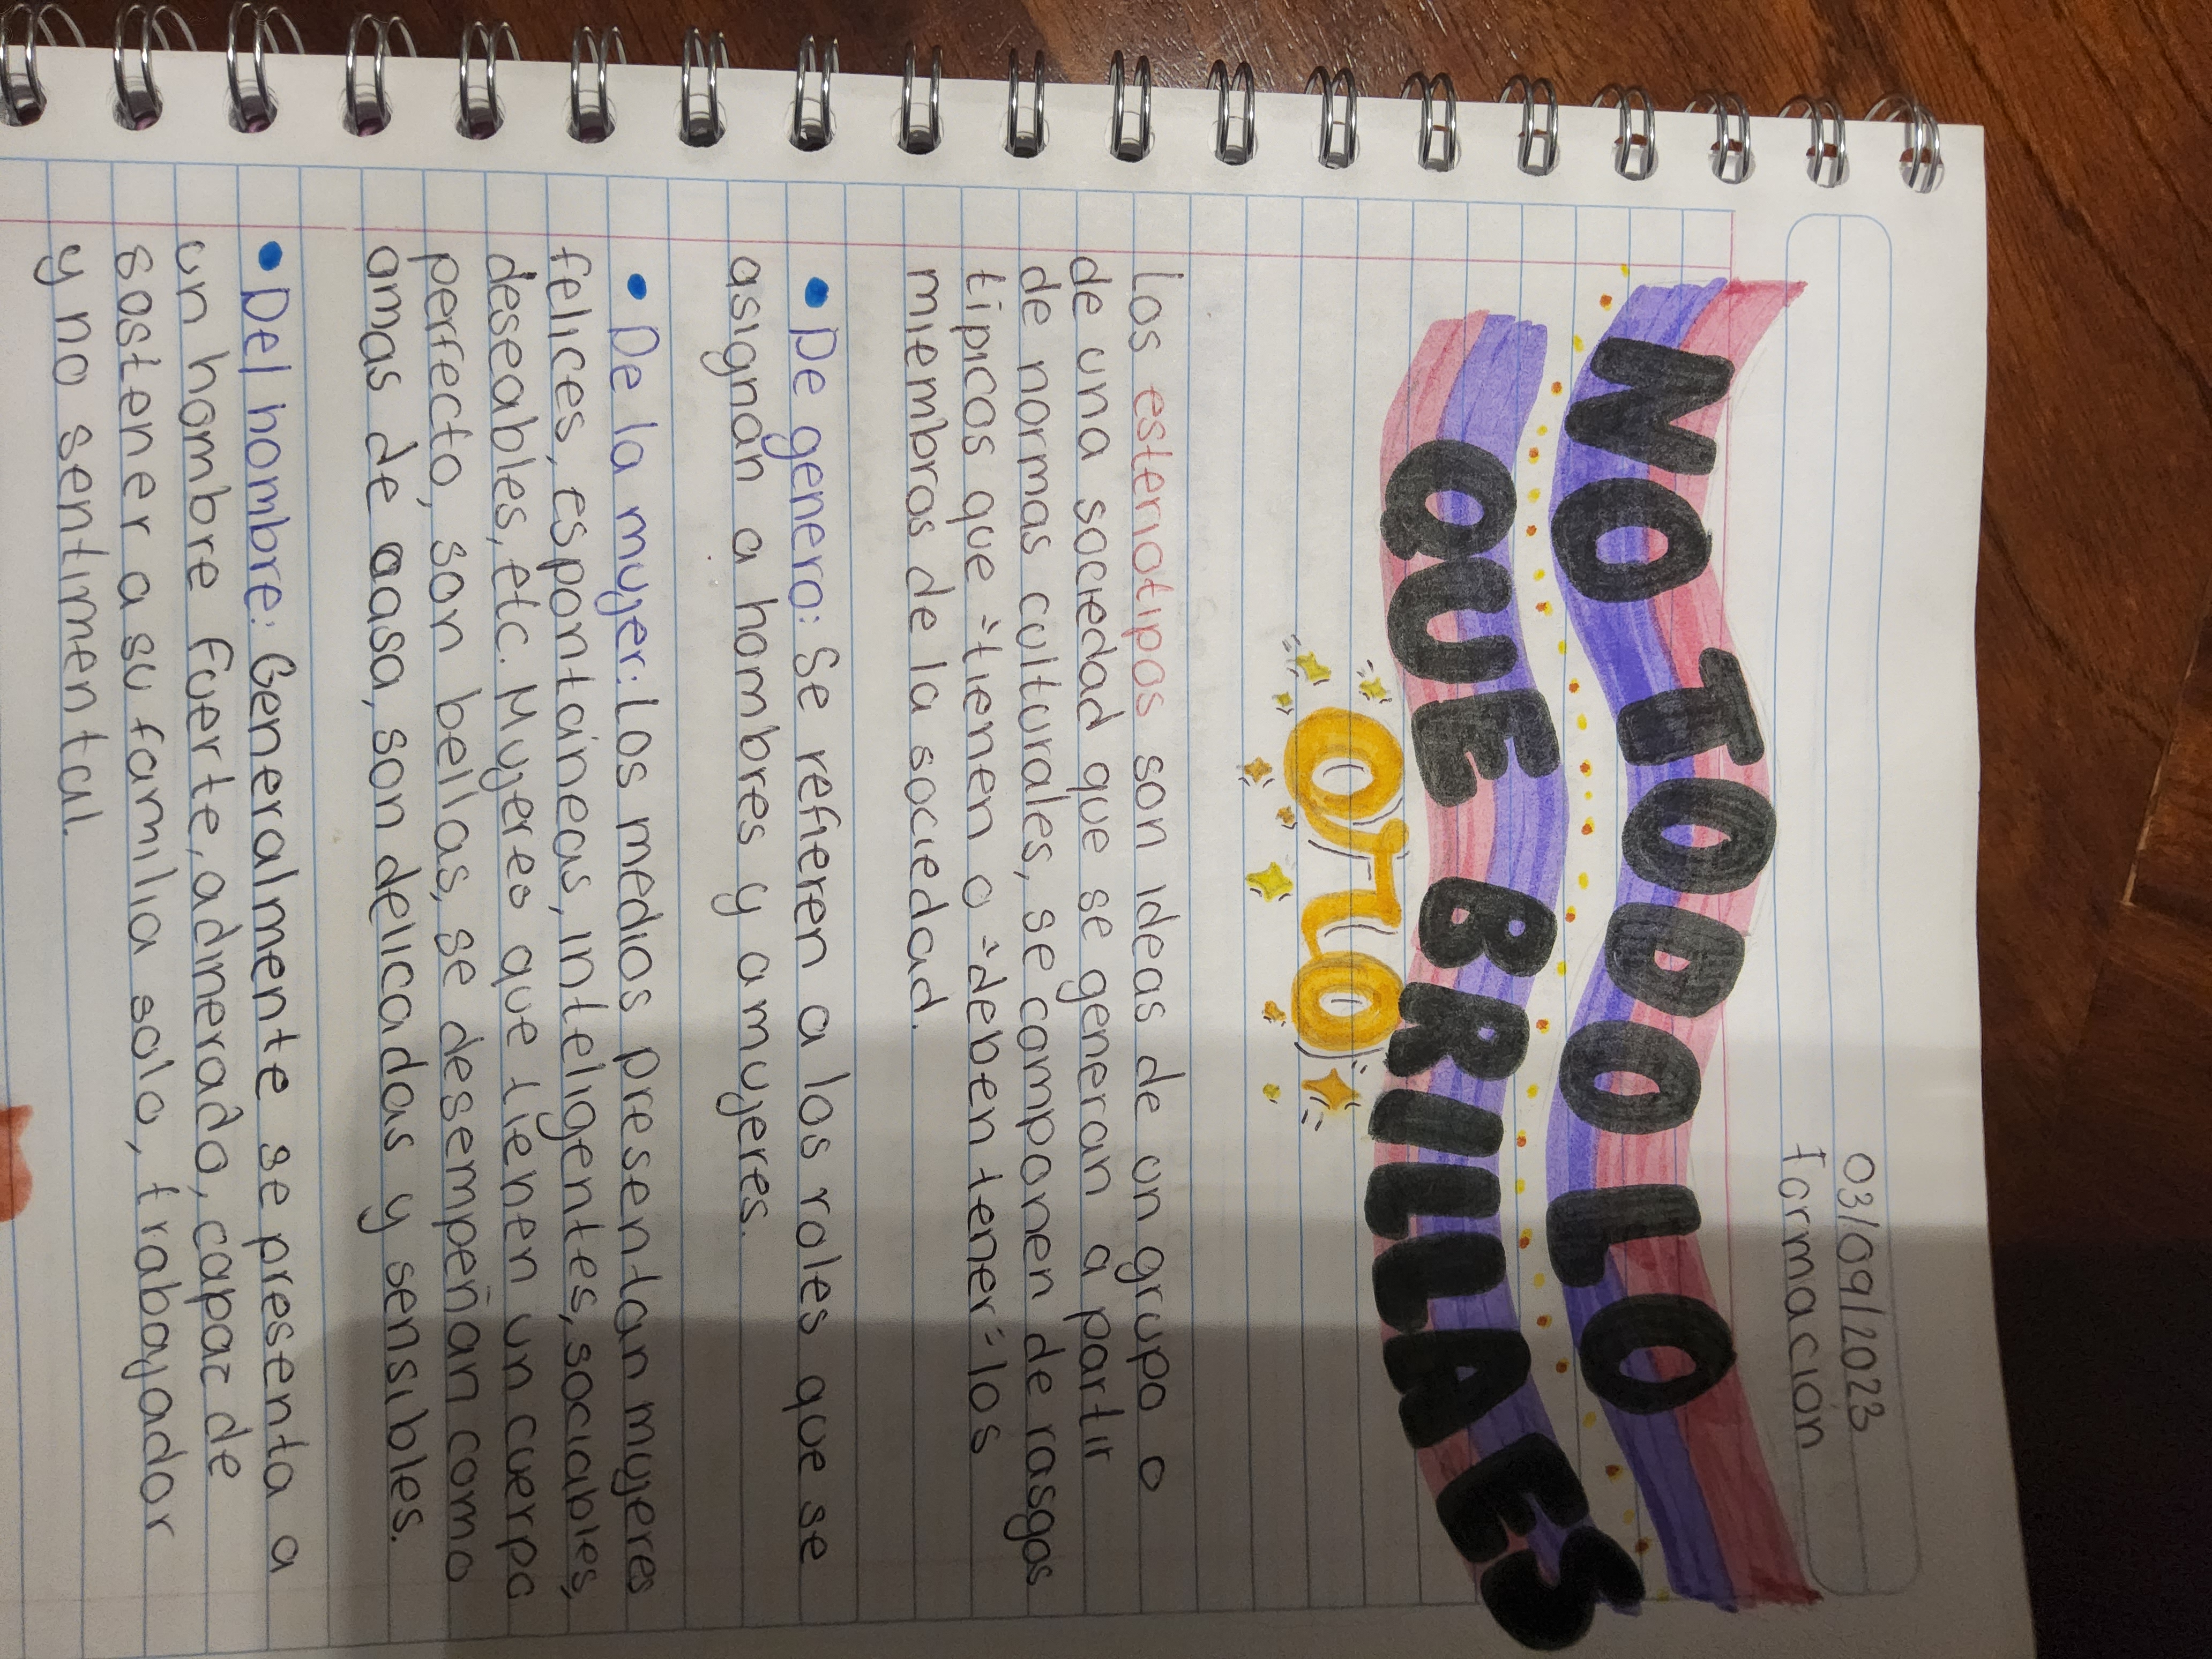 03/09/2023
Formación
NO TODO LO
QUE BRILLA ES
oro
Los esteriotipos son ideas de un grupo o
de una sociedad que se generan a partir
de normas culturales, se componen de rasgos
tipicos que "tienen o "deben tener" los
miembros de la sociedad.
• De genero: Se refieren a los roles que se
asignan a hombres y a mujeres.
• De la mujer: Los medios presentan mujeres
felices, espontáineas, inteligentes, sociables,
deseables, etc. Mujeres que tienen un cuerpo
perfecto, son bellas, se desempeñan como
amas de casa, son delicadas y sensibles.
• Del hombre: Generalmente se presenta a
un hombre fuerte, adinerado, capaz de
sostener a su familia solo, trabajador
y no sentimental.